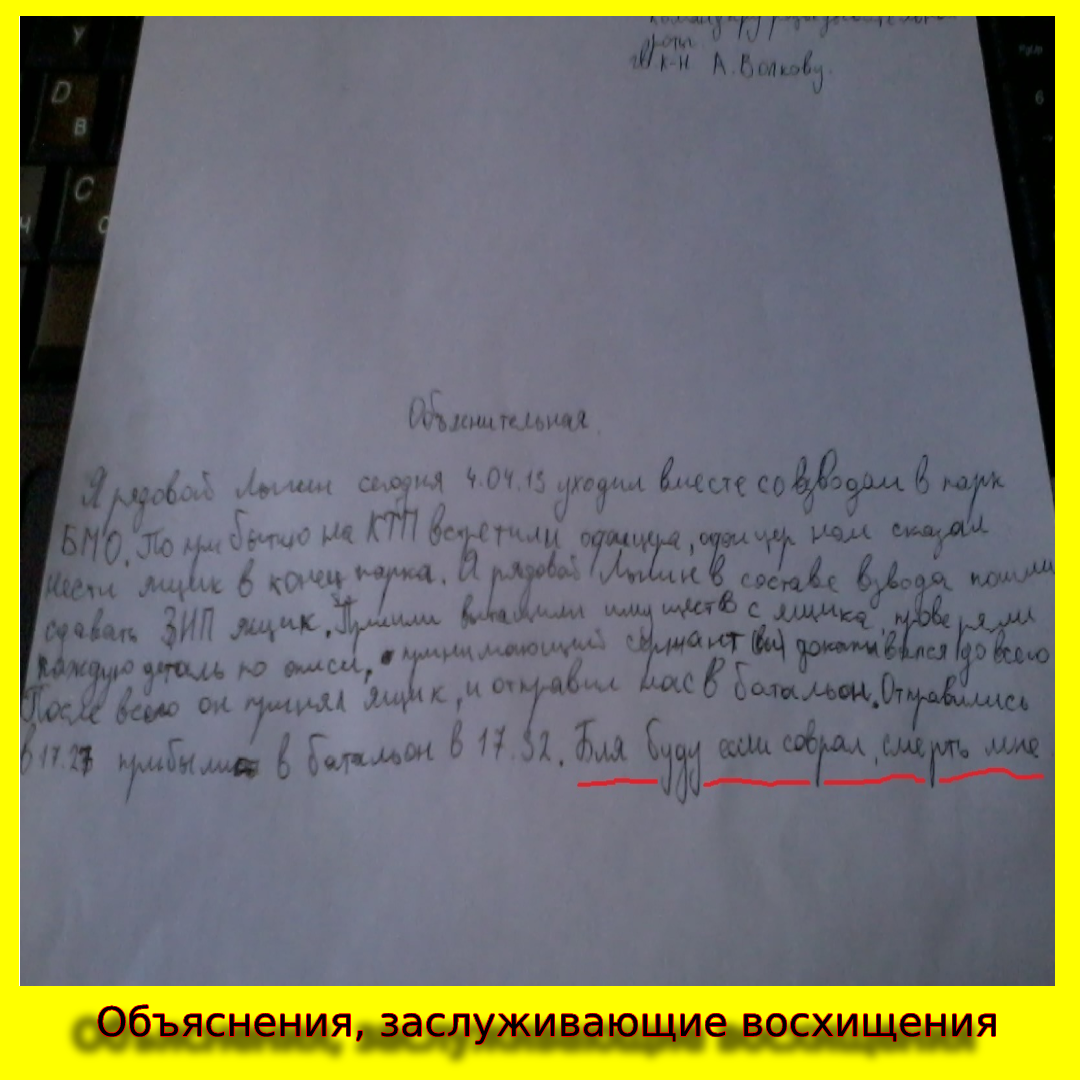 роты
гв к-н А. Волкову.
Объяснительная.
Я рядовой сегодня 4.04.13 уходил вместе со взводам в парк
БМО. По прибытию на КТП встретили офицера, офицер нам сказал
нести ящик в конец парка. Я рядовой в составе взвода пошли
сдавать ЗИП ящик. Пришли вытащили имуществ с ящика, проверяли
каждую деталь по описи, принимающий сержант (вы) докапывался до всего
После всего он принял ящик, и отправил нас в батальон. Отправились
в 17.27 прибыли в батальон в 17.32. Бля буду если соврал, смерть мне
Объяснения, заслуживающие восхищения